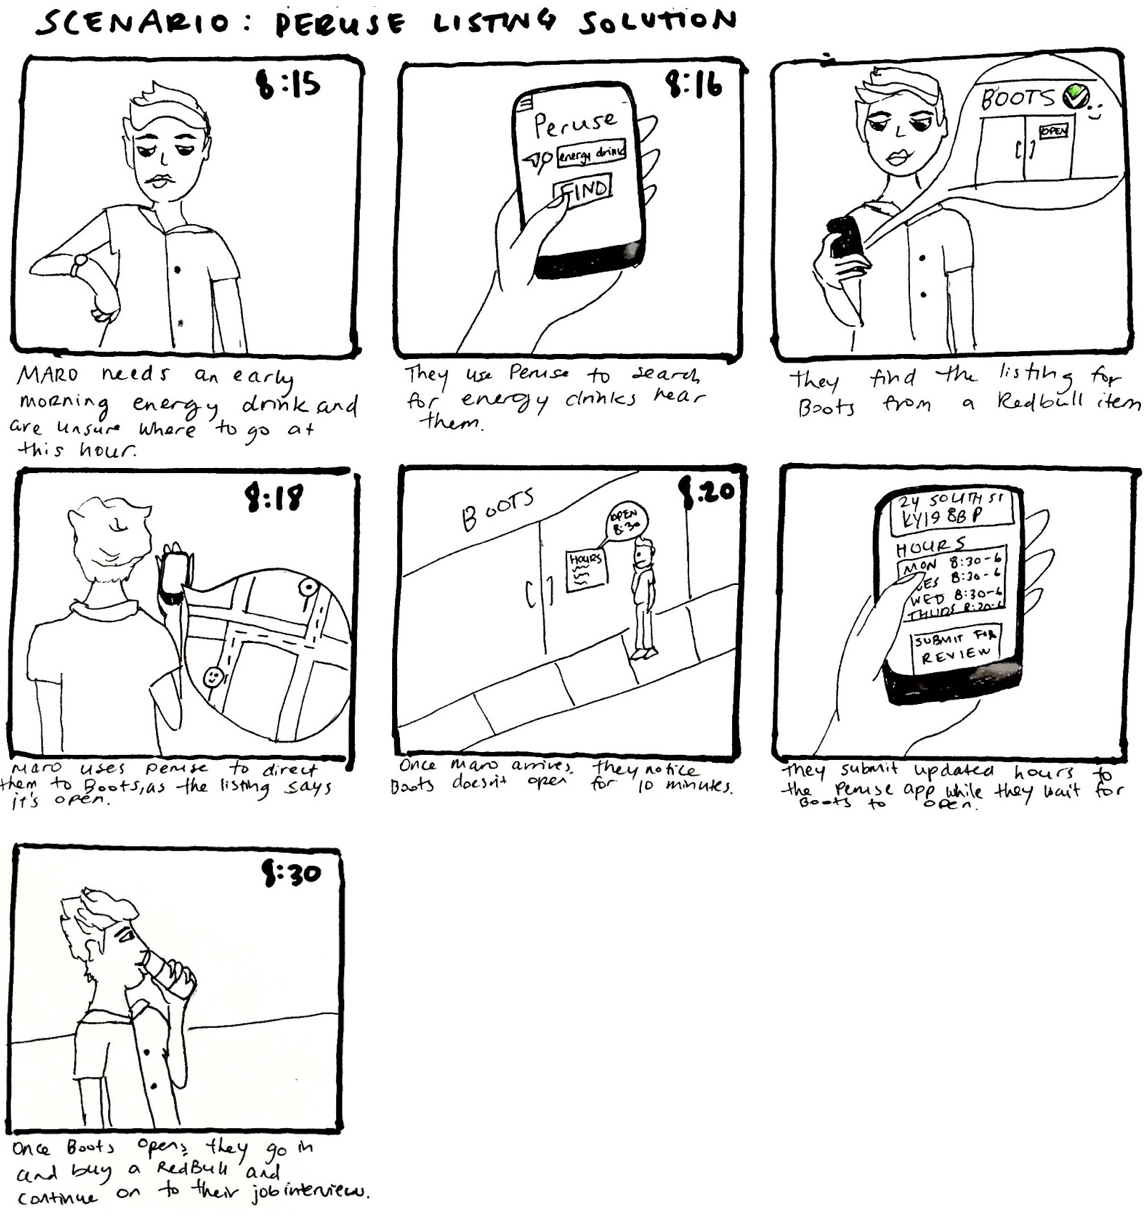 SCENARIO: PERUSE LISTING SOLUTION
8:15
MARO needs an early
morning energy drink and
are unsure where to go at
this hour.
8:16
Peruse
energy drink
FIND
They use Peruse to search
for energy drinks near
them.
BOOTS
OPEN
They find the listing for
Boots from a Redbull item
8:18
Maro uses peruse to direct
them to Boots, as the listing says
it's open.
8:20
BOOTS
OPEN
8:30
HOURS
Once maro arrives, they notice
Boots doesn't open for 10 minutes.
24 SOUTH ST
KY19 8BP
HOURS
MON 8:30-6
UES 8:30-6
WED 8:30-6
THURS 8:30-6
SUBMIT FOR
REVIEW
They submit updated hours to
the Peruse app while they wait for
Boots to open.
8:30
Once Boots opens, they go in
and buy a RedBull and
continue on to their job interview.